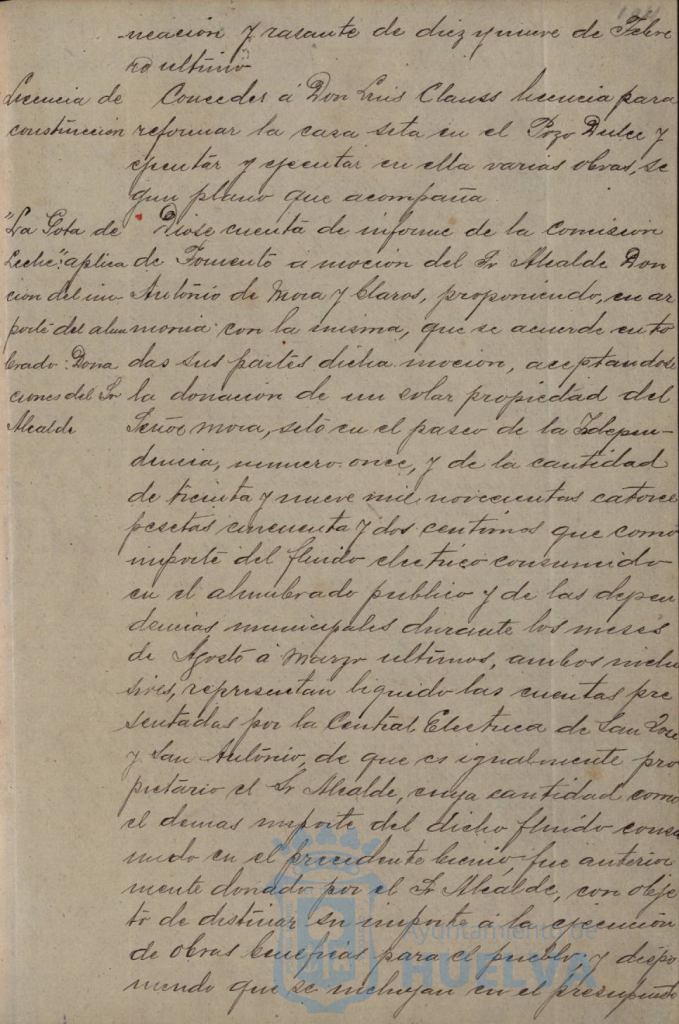 neacion y rasante de diez y nueve de Febre
ro ultimo
Licencia de
construccion
Conceder á Don Luis Clauss licencia para
reformar la casa sita en el Pozo Dulce y
ejecutar y ejecutar en ella varias obras, se
gun plano que acompaña
"La Gota de
Leche": aplica
cion del im-
porte del alum
brado: Dona
ciones del Sr
Alcalde
Diose cuenta de informe de la comision
de Fomento a mocion del Sr Alcalde Don
Antonio de Mora y Claros, proponiendo, en ar
monia con la misma, que se acuerde en to
das sus partes dicha mocion, aceptandose
la donacion de un solar propiedad del
Señor Mora, sito en el paseo de la Indepen-
dencia, numero once, y de la cantidad
de treinta y nueve mil novecientas catorce
pesetas cincuenta y dos centimos que como
importe del fluido electrico consumido
en el alumbrado publico y de las depen
dencias municipales durante los meses
de Agosto á Marzo ultimos, ambos inclu
sives, representan liquido las cuentas pre
sentadas por la Central Electrica de San José
y San Antonio, de que es igualmente pro
pietario el Sr Alcalde, cuya cantidad como
el demas importe del dicho fluido consu
mido en el precedente bienio, fue anterior
mente donado por el Sr Alcalde, con obje
to de destinar su importe á la ejecucion
de obras benéficas para el pueblo, y dispo
niendo que se incluyan en el presupuesto
Ayuntamiento de
HUELVA